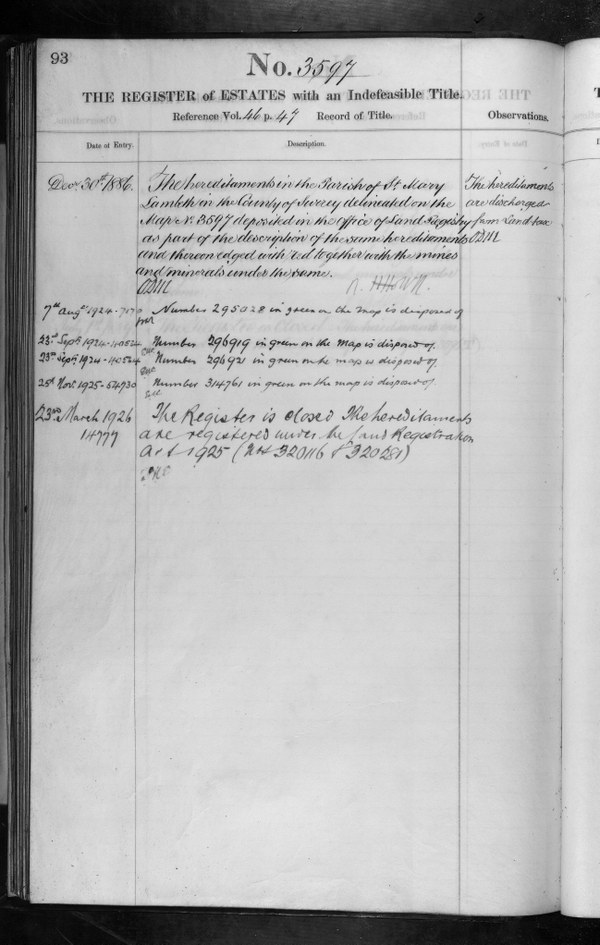 93
No. 3597
THE REGISTER of ESTATES with an Indefeasible Title.
Reference Vol. 46 p. 47 Record of Title.
Observations.
Date of Entry.
Description.
Decr 30th 1886.
The hereditaments in the Parish of St Mary
Lambeth in the County of Surrey delineated on the
Map No 3597 deposited in the Office of Land Registry
as part of the description of the same hereditaments
and thereon edged with red together with the mines
and minerals under the same.
The hereditaments
are discharged
from Land tax
7th Augt 1924
Number 295028 in green on the map is disposed of
23rd Septr 1924 - 40524
Number 296919 in green on the map is disposed of.
23rd Septr 1924 - 40524
Number 296921 in green on the map is disposed of.
25th Novr 1925 - 54930
Number 314761 in green on the map is disposed of.
23rd March 1926
14777
The Register is closed The hereditaments
are registered under the Land Registration
Act 1925 (Nos 320116 & 320281)